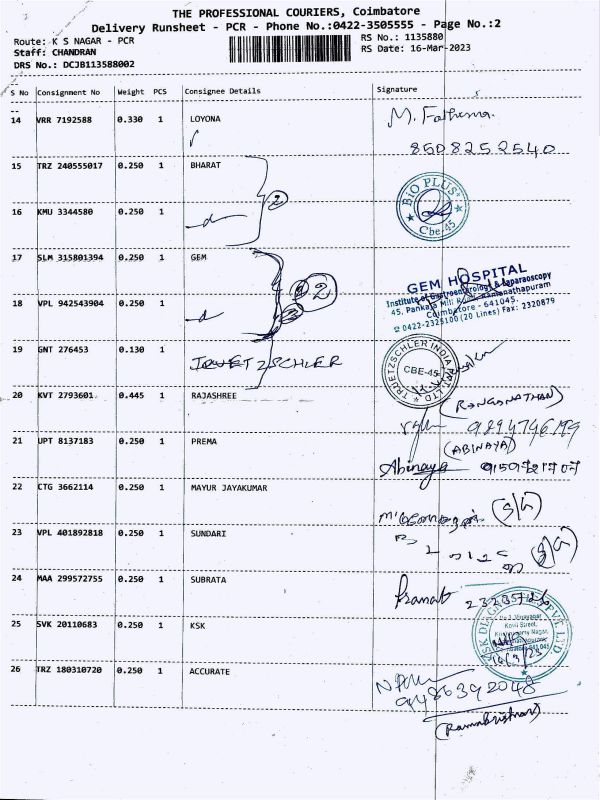 THE PROFESSIONAL COURIERS, Coimbatore
Delivery Runsheet - PCR - Phone No.:0422-3505555 - Page No.:2
Route: K S NAGAR - PCR
RS No.: 1135880
Staff: CHANDRAN
RS Date: 16-Mar-2023
DRS No.: DCJB113588002
S No Consignment No Weight PCS Consignee Details Signature
14 VRR 7192588 0.330 1 LOYONA M. Fathema
8508252540
15 TRZ 240555017 0.250 1 BHARAT
BIO PLUS
Cbe-45
16 KMU 3344580 0.250 1
2
17 SLM 315801394 0.250 1 GEM
GEM HOSPITAL
Institute of Gastroenterology & Laparaoscopy
45, Pankaja Mill Road, Ramanathapuram
Coimbatore - 641045.
✆ 0422-2325100 (20 Lines) Fax: 2320879
18 VPL 942543904 0.250 1
2
19 GNT 276453 0.130 1
TRUETZSCHLER
TRUETZSCHLER INDIA PVT. LTD
CBE-45
20 KVT 2793601 0.445 1 RAJASHREE
(RANGANATHAN)
9894746199
21 UPT 8137183 0.250 1 PREMA
(ABINAYA)
Abinaya
22 CTG 3662114 0.250 1 MAYUR JAYAKUMAR
23 VPL 401892818 0.250 1 SUNDARI
24 MAA 299572755 0.250 1 SUBRATA Pramat
25 SVK 20110683 0.250 1 KSK
Kovil Street,
Krishnasamy Nagar,
26 TRZ 180310720 0.250 1 ACCURATE
9486392048
(Ramakrishnan)